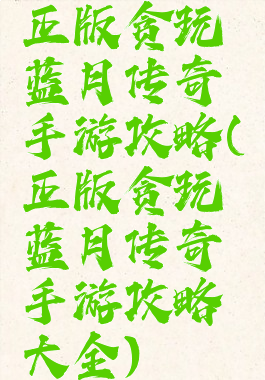 正版贪玩
蓝月传奇
手游攻略(
正版贪玩
蓝月传奇
手游攻略
大全)